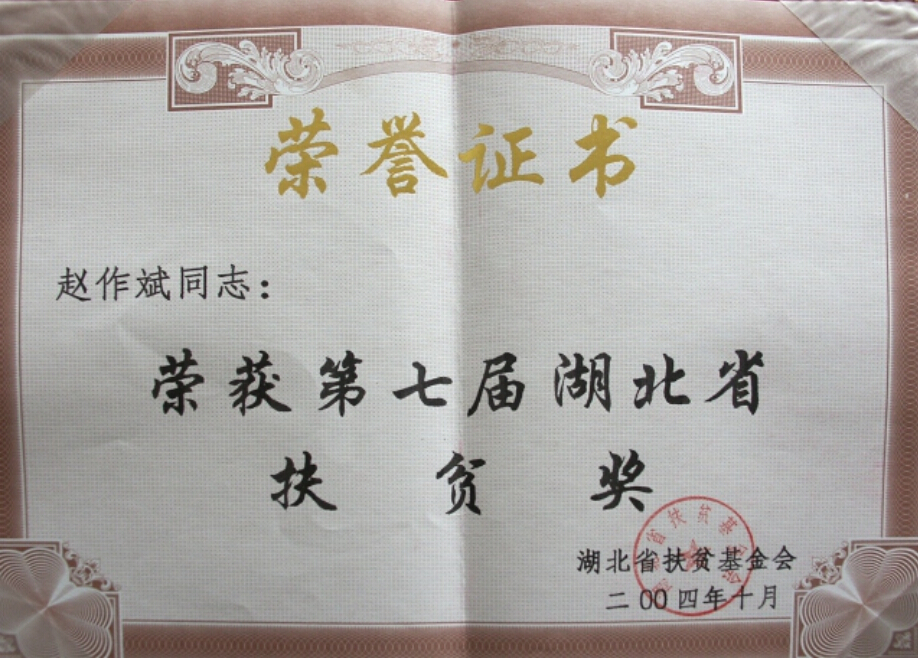 荣誉证书
赵作斌同志：
荣获第七届湖北省
扶贫奖
省扶贫基
湖北省扶贫基金会
二00四年十月